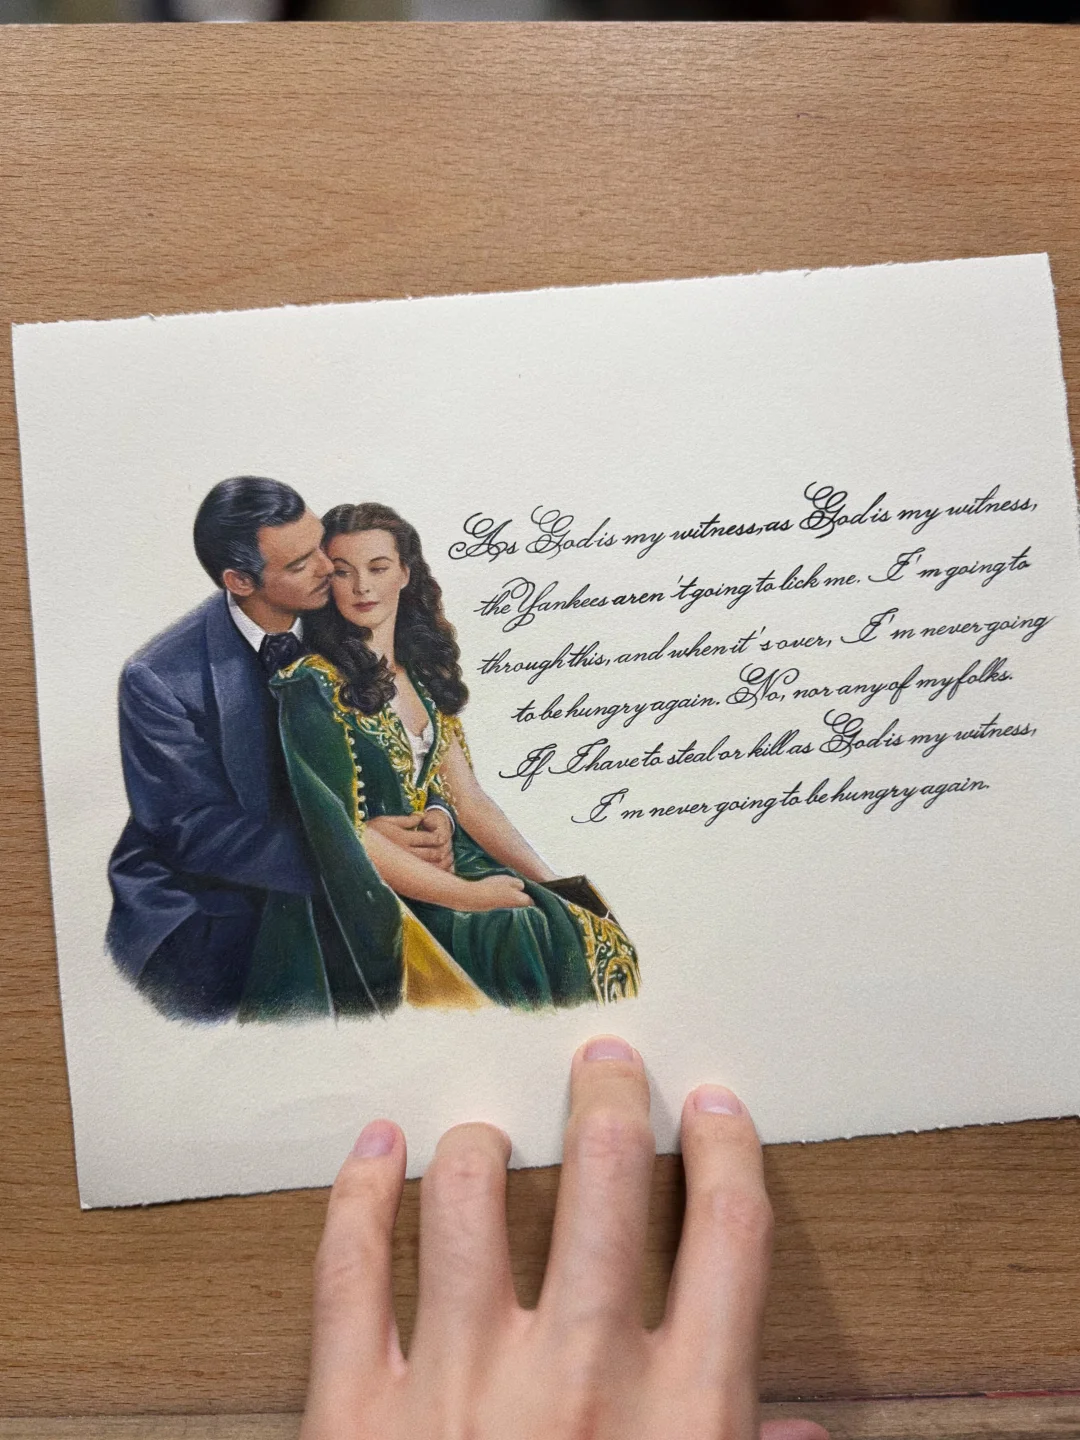 As God is my witness, as God is my witness,
the Yankees aren't going to lick me. I'm going to
through this, and when it's over, I'm never going
to be hungry again. No, nor any of my folks.
If I have to steal or kill as God is my witness,
I'm never going to be hungry again.